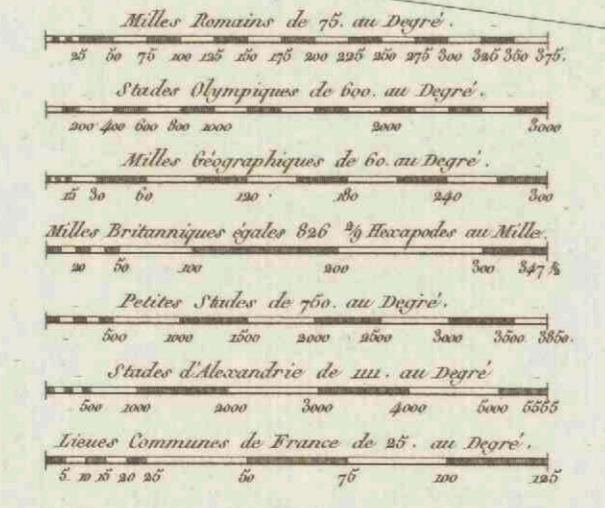 Milles Romains de 75. au Degré.
25 50 75 100 125 150 175 200 225 250 275 300 325 350 375.
Stades Olympiques de 600. au Degré.
200 400 600 800 1000 2000 3000
Milles Géographiques de 60. au Degré.
15 30 60 120 180 240 300
Milles Britanniques égales 826 2/9 Hexapodes au Mille
20 50 100 200 300 347 ½
Petites Stades de 750. au Degré.
500 1000 1500 2000 2500 3000 3500 3850.
Stades d'Alexandrie de 1111. au Degré
500 1000 2000 3000 4000 5000 5555
Lieues Communes de France de 25. au Degré.
5 10 15 20 25 50 75 100 125